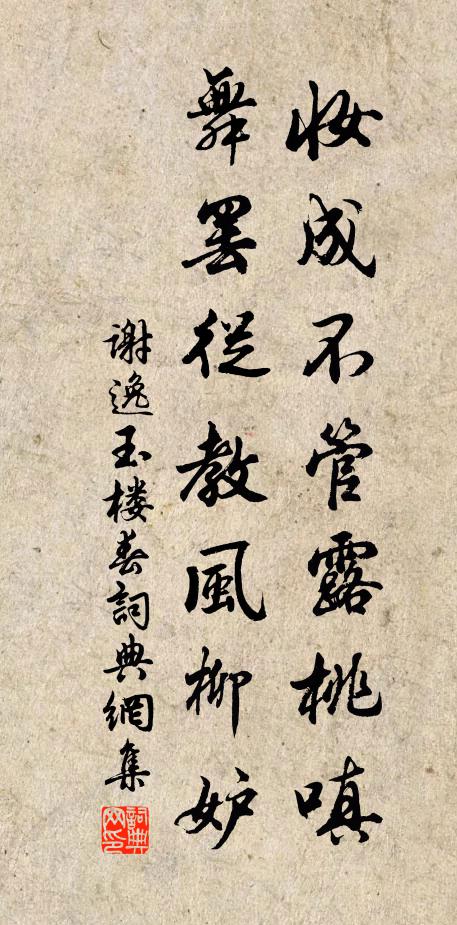 妝成不管露桃嗔
舞罷從教風柳妒
謝逸玉楼春詞典網集
詞典网印